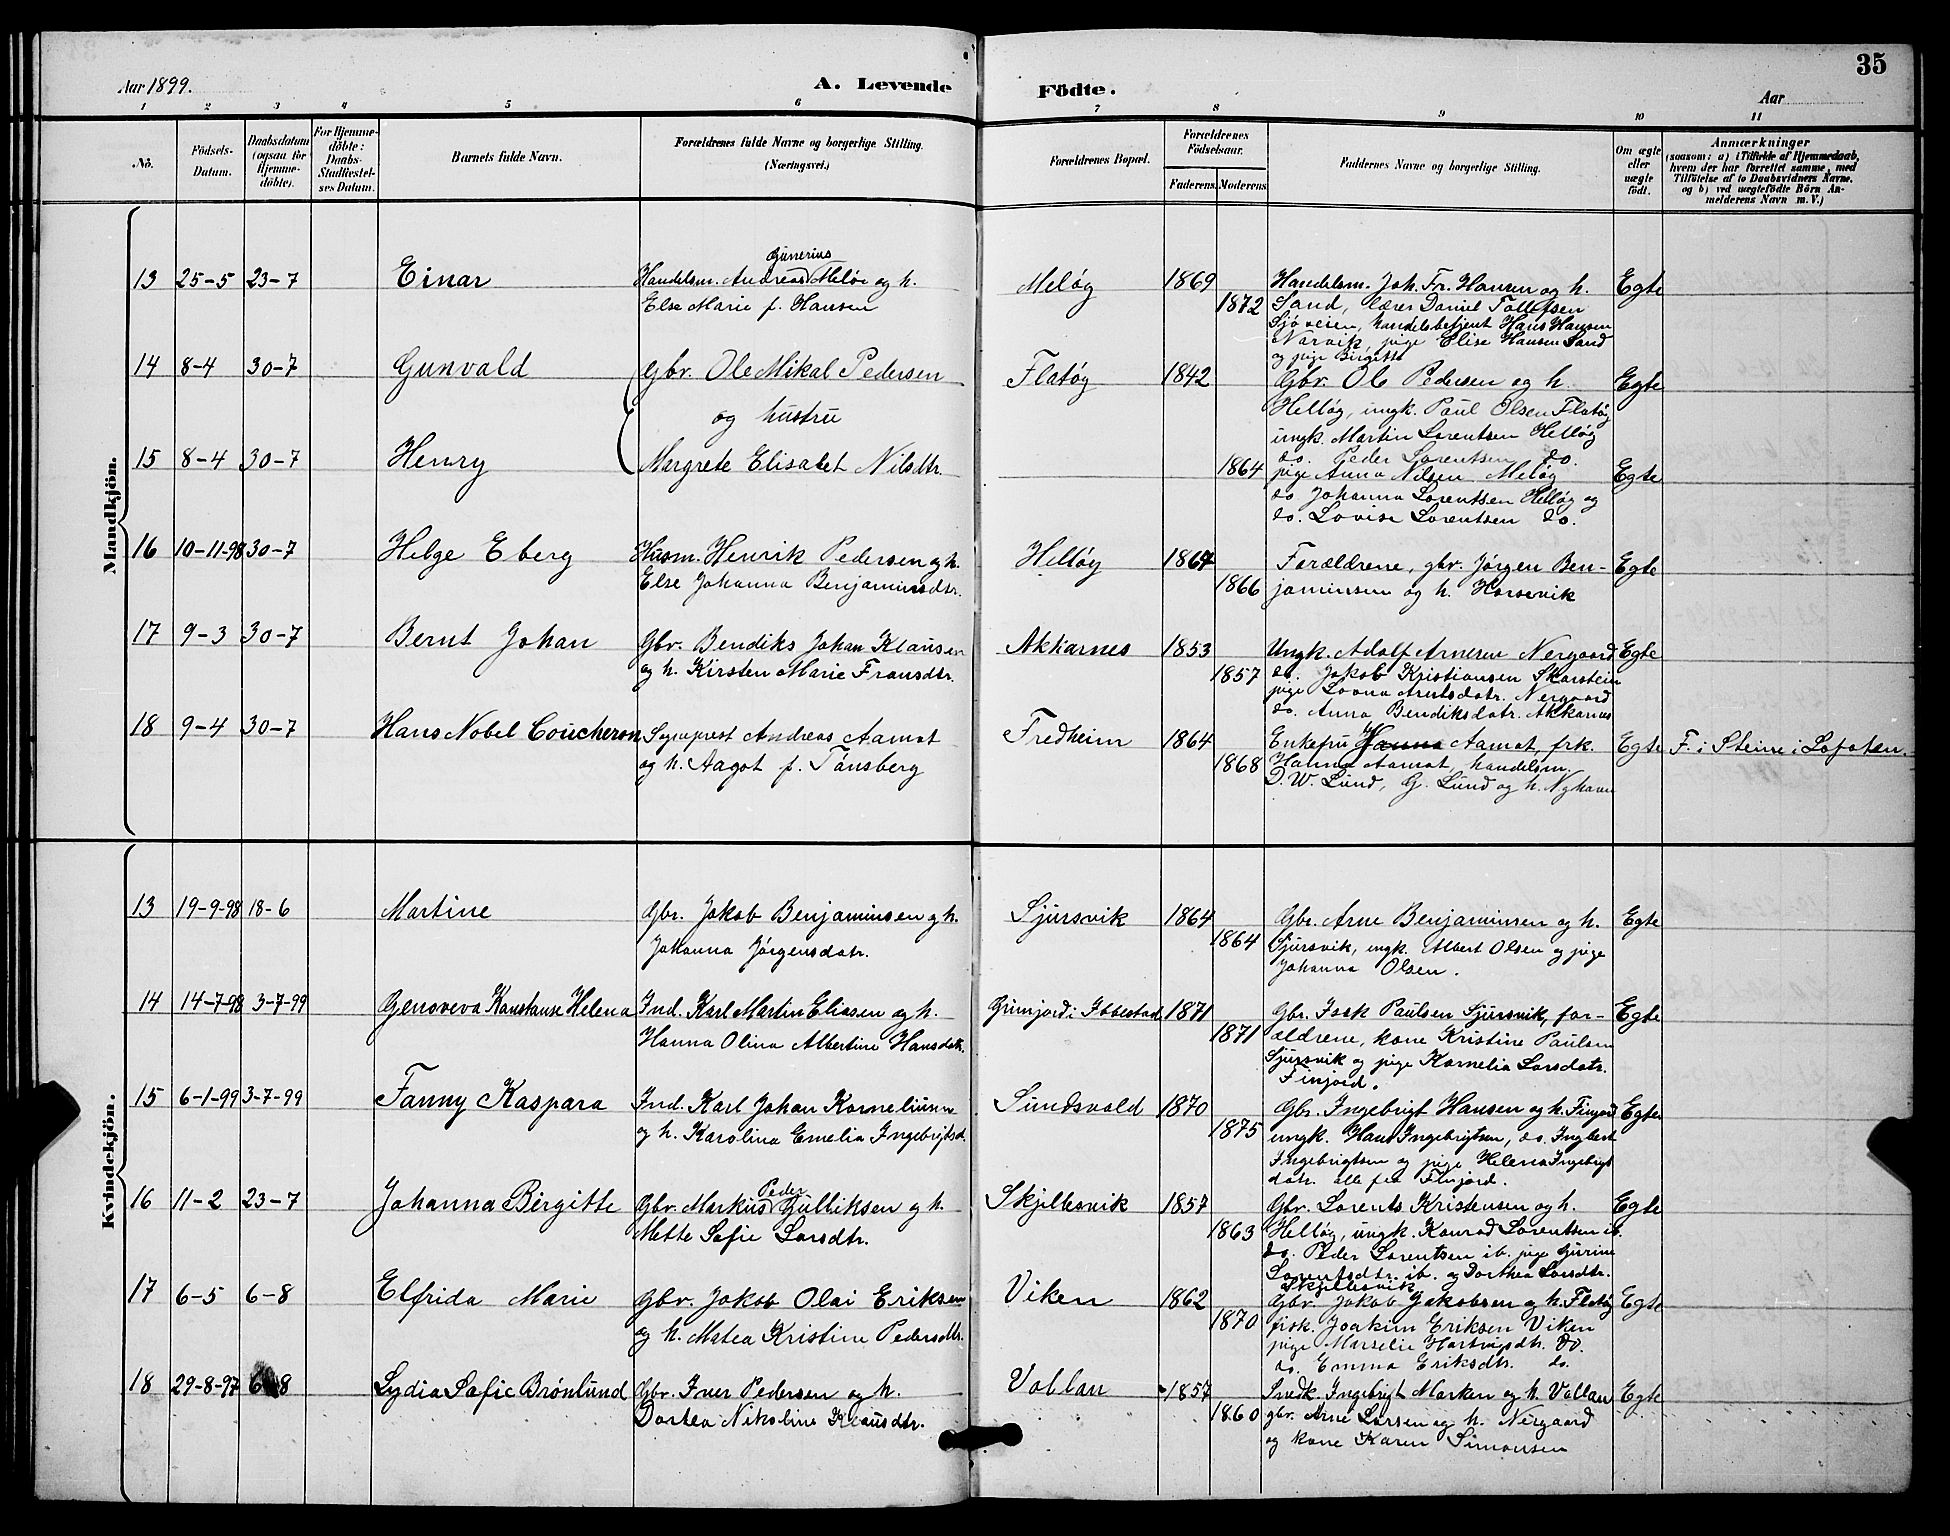 35
Aar 1899.
A. Levende Födte.
Aar
1 2 3 4 5 6 7 8 9 10 11
Nö.
Födsels-Datum.
Daabsdatum (ogsaa for Hjemmedöbte).
For Hjemmedöbte: Daabs-Stadfæstelses Datum.
Barnets fulde Navn.
Forældrenes fulde Navne og borgerlige Stilling. (Næringsvei.)
Forældrenes Bopæl.
Forældrenes Födselsaar.
Faderens. Moderens.
Faddernes Navne og borgerlige Stilling.
Om ægte eller uægte födt.
Anmærkninger
(saasom: a) i Tilfælde af Hjemmedaab,
hvem der har forrettet samme, med
Tilföielse af to Daabsvidners Navne.
og b) ved uægtefödte Börn An-
melderens Navn m. V.)
Mandkjön.
13 25-5 23-7 Einar
Gunerius
Handelsm. Andreas Meløe og h.
Else Marie f. Hansen
Meløg 1869 1872
Handelsm. Joh. Fr. Hansen og h.
Sand, lærer Daniel Tollefsen
Sjøveien, handelsbetjent Hans Hansen
Narvik, pige Elise Hansen Sand
og pige Birgitte
Egte
14 8-4 30-7 Gunvald
Gbr. Ole Mikal Pedersen
og hustru
Flatøg 1842
Gbr. Ole Pedersen og h.
Helløg, ungk. Paul Olsen Flatøg
ungk. Martin Lorentsen Helløg
do. Peder Lorentsen do.
Egte
15 8-4 30-7 Henry
Margrete Elisabet Nilsdtr.
1864
pige Anna Nilsen Meløg
do Johanna Lorentsen Helløg og
do. Lovise Lorentsen do.
Egte
16 10-11-98 30-7 Helge Eberg
Husm. Henrik Pedersen og h.
Else Johanna Benjaminsdtr.
Helløg 1867 1866
Forældrene, gbr. Jørgen Ben-
jaminsen og h. Horsevik
Egte
17 9-3 30-7 Bernt Johan
Gbr. Bendiks Johan Klausen
og h. Kirsten Marie Fransdtr.
Akkarnes 1853 1857
Ungk. Adolf Arnesen Nergaard
do. Jakob Kristiansen Skarstein
pige Lovna Arntsdatr. Nergaard
do. Anna Bendiksdatr. Akkarnes
Egte
18 9-4 30-7 Hans Nobel Coucheron
Sogneprest Andreas Aamot
og h. Aagot f. Tønsberg
Fredheim 1864 1868
Enkefru Hanna Aamot, frk.
Halma Aamot, handelsm.
D. W. Lund, G. Lund og h. Nyhavn
Egte F. i Steine i Lofoten.
Kvindekjön.
13 19-9-98 18-6 Martine
Gbr. Jakob Benjaminsen og h.
Johanna Jørgensdatr.
Sjursvik 1864 1864
Gbr. Arne Benjaminsen og h.
Sjursvik, ungk. Albert Olsen og pige
Johanna Olsen.
Egte
14 14-7-98 3-7-99 Genoveva Konstanse Helena
Ind. Karl Martin Eliasen og h.
Hanna Olina Albertine Hansdatr.
Grunfjord i Ibbestad 1871 1871
Gbr. Isak Paulsen Sjursvik, for-
ældrene, kone Kristine Paulsen
Sjursvik og pige Kornelia Larsdatr.
Finjord.
Egte
15 6-1-99 3-7-99 Fanny Kaspara
Ind. Karl Johan Korneliussen
og h. Karolina Emelia Ingebrigtsd.
Sundsvold 1870 1875
Gbr. Ingebrigt Hansen og h. Finjord
ungk. Hans Ingebrigtsen, do. Ingbert
Ingebrigtsen og pige Helena Ingebrigt
datr. alle fra Finjord.
Egte
16 11-2 23-7 Johanna Birgitte
Peder
Gbr. Markus Gulliksen og h.
Mette Sofie Larsdtr.
Skjellesvik 1857 1863
Gbr. Lorents Kristensen og h.
Helløg, ungk. Konrad Lorentsen ib.
do. Peder Lorentsen ib. pige Gurine
Lorentsdtr. ib. og Dorthea Larsdtr.
Skjellesvik
Egte
17 6-5 6-8 Elfrida Marie
Gbr. Jakob Olai Eriksen
og h. Matea Kristine Pedersdtr.
Viken 1862 1870
Gbr. Jakob Jakobsen og h. Flatøg
fisk. Joakim Eriksen Viken
pige Marselie Hartvigsdtr. do.
do. Emma Eriksdtr. do.
Egte
18 29-8-97 6-8 Lydia Sofie Brønlund
Gbr. Iver Pedersen og h.
Dortea Nikoline Klausdtr.
Vollan 1857 1860
Snedk. Ingebrigt Marken og h. Vollan
gbr. Arne Larsen og h. Nergaard
og kone Karen Simonsen
Egte